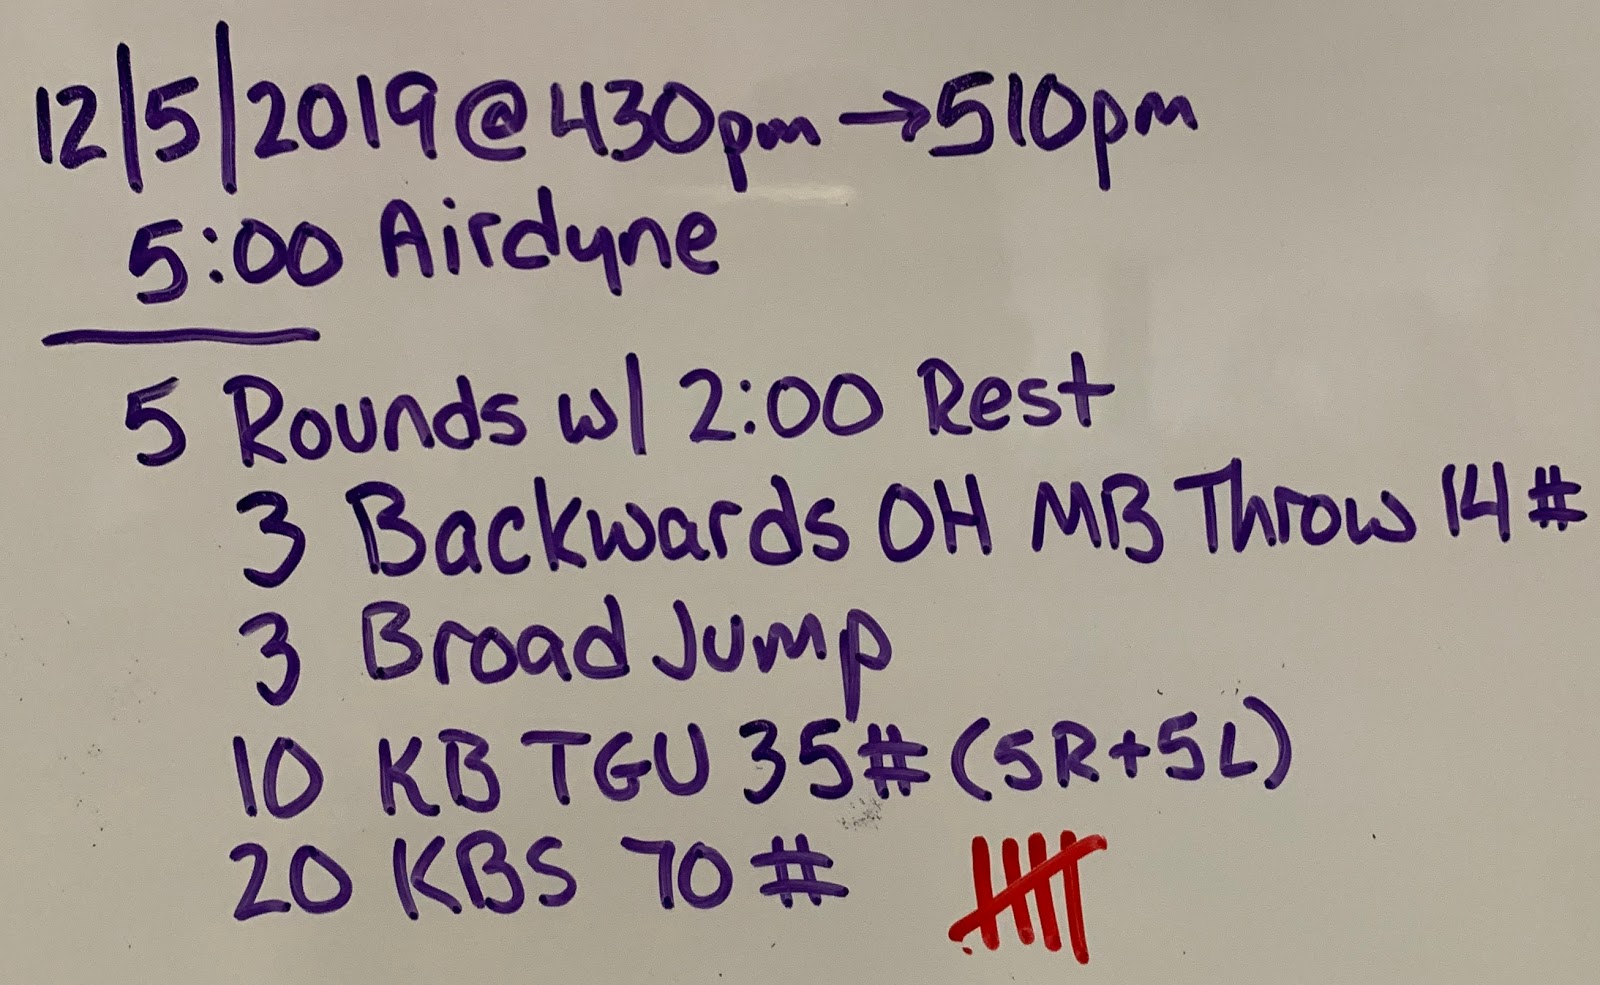 12/5/2019 @ 430pm → 510pm
5:00 Airdyne
5 Rounds w/ 2:00 Rest
3 Backwards OH MB Throw 14#
3 Broad Jump
10 KB TGU 35# (5R+5L)
20 KBS 70#